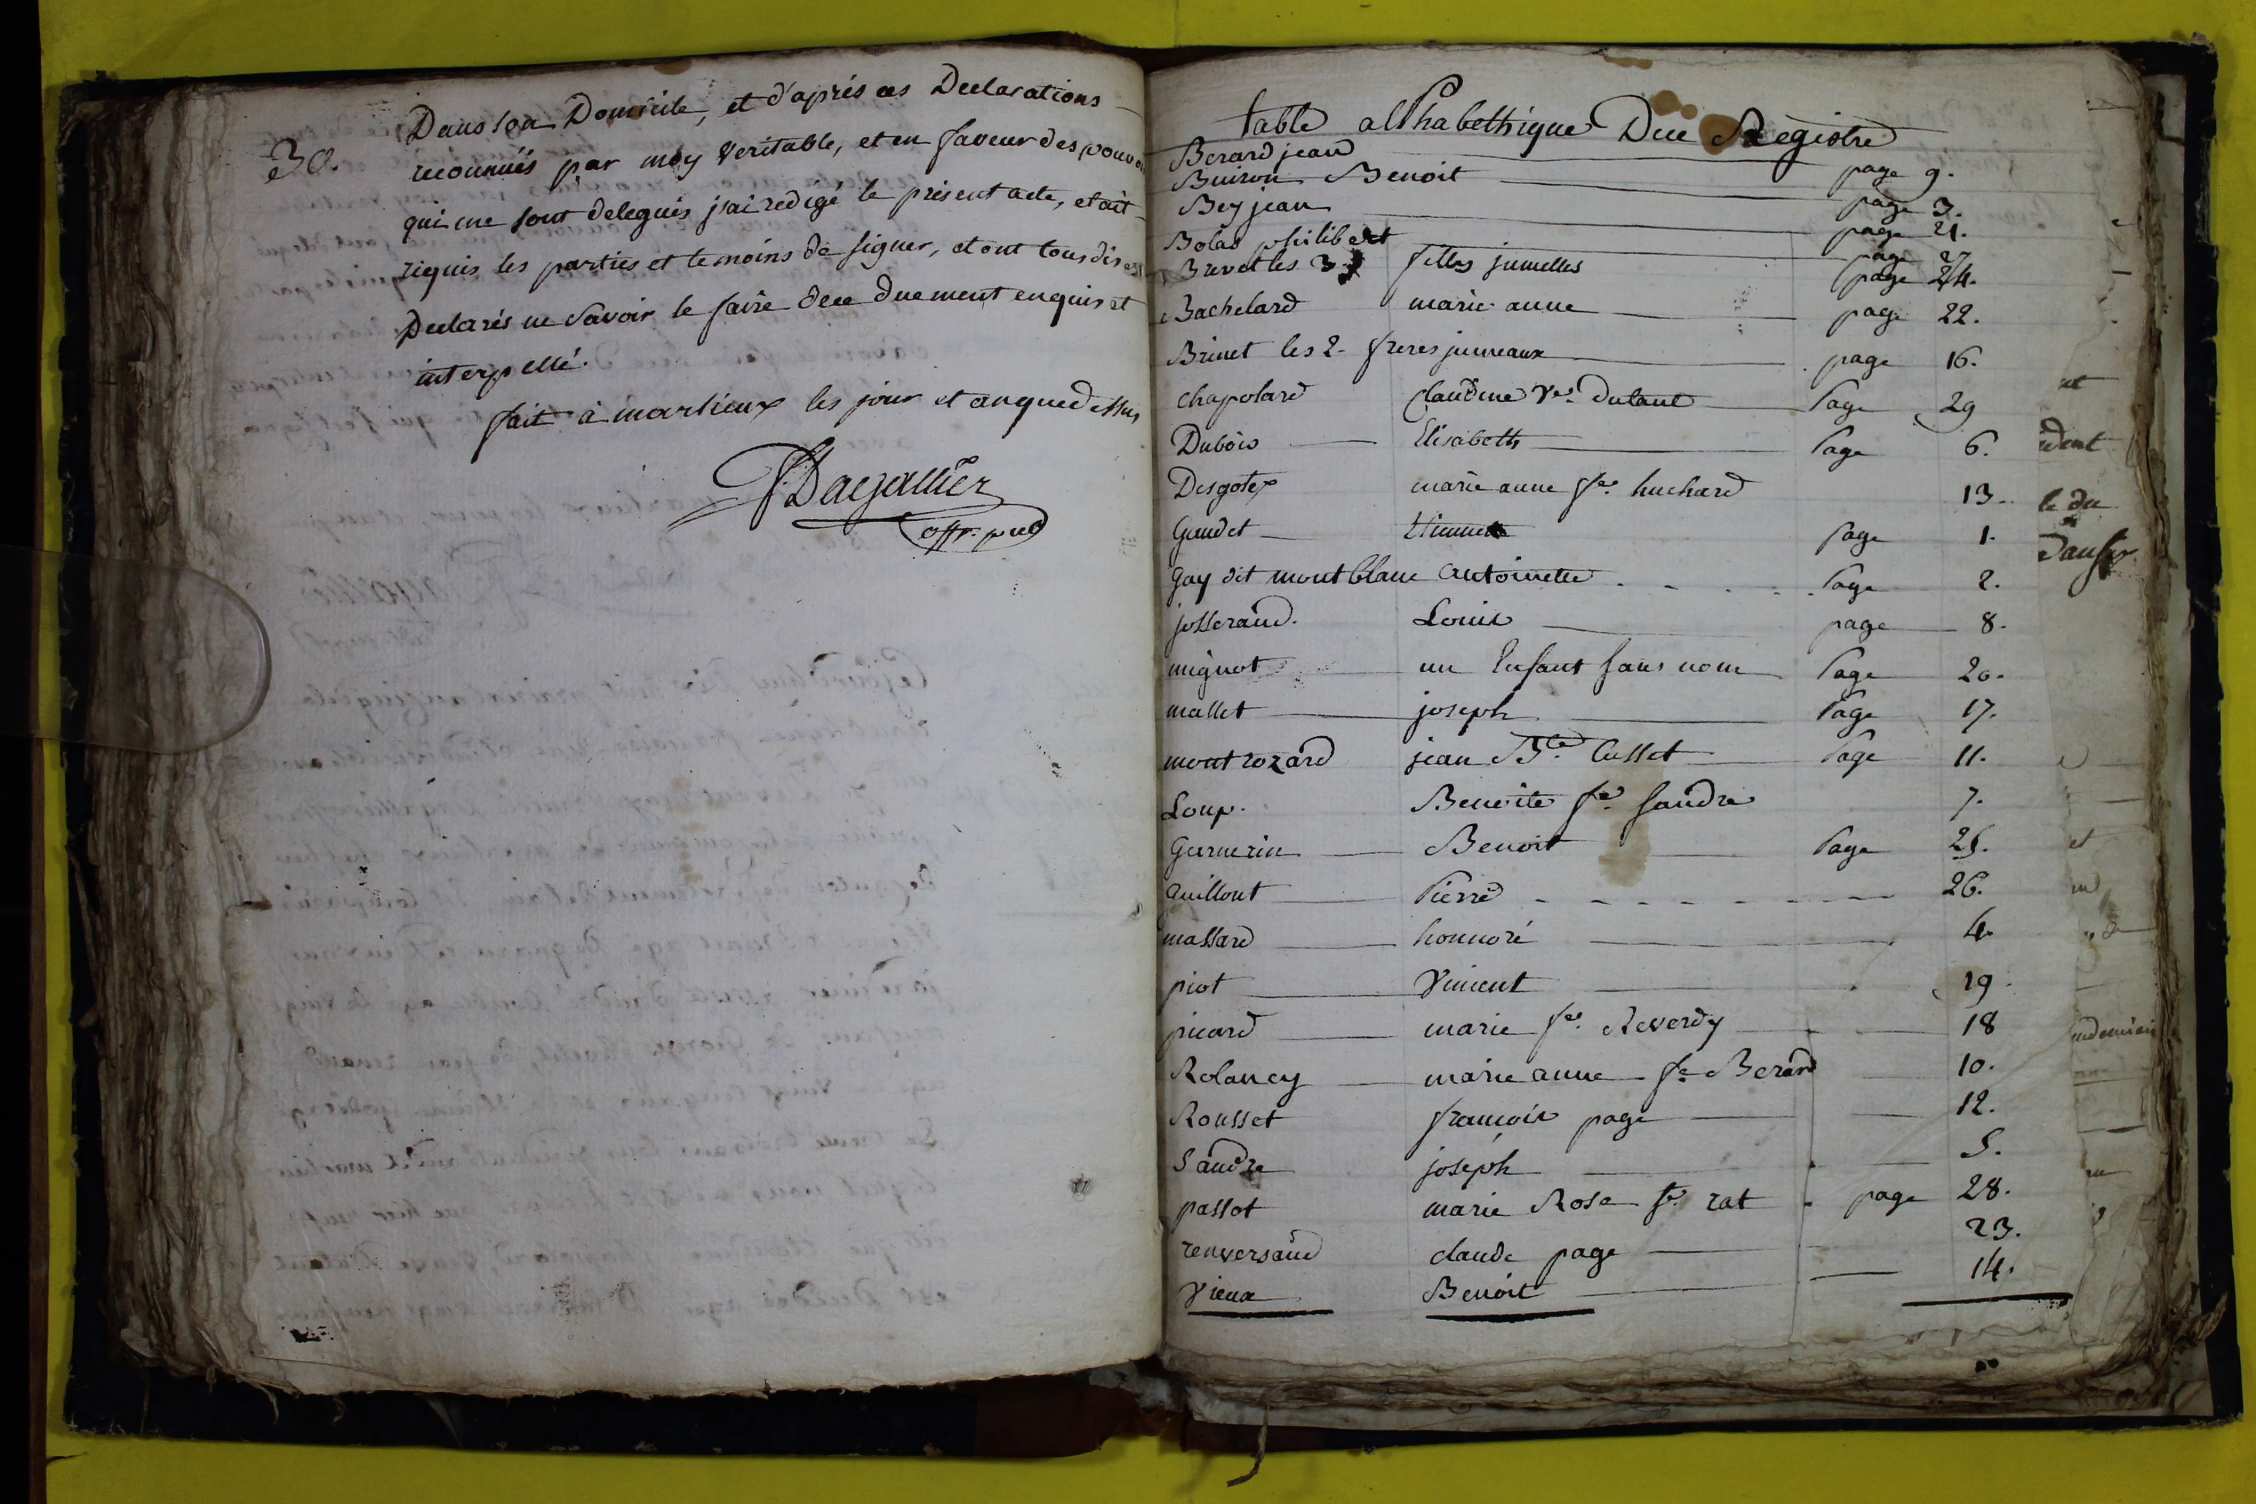 30.
Dans son Domicile, et d'après ces Declarations
reconnués par moy veritable, et en faveur des pouvoi
qui me sont delegués j'ai redigé le présent acte, et ait
requis les parties et temoins de signer, et ont tous dis et
Declarés ne savoir le faire dece duement enquis et
interpellé.
fait à marlieux les jour et anque dessus
Dagallier
offr. pub
table alphabethique Due Registre
Berard jean page 9.
Buiron Benoit page 3.
Bey jean page 21.
Bolas philibert page 27
Brevet les 3 filles jumelles page 24.
Bachelard marie anne page 22.
Brinet les 2 freres jumeaux page 16.
chapolard Claudine Ve. dutant Page 29
Dubois Elisabeth Page 6.
Desgotex marie anne fe. huchard 13.
Gaudet Etiennette Page 1.
Gay dit montblanc antoinette Page 2.
josserand. Louis page 8.
mignot un Enfant sans nom Page 20.
mallet joseph Page 17.
montrozard jean Bte. Cusset Page 11.
Loup. Benoite fe. sandre 7.
Guernerin Benoit Page 25.
Quillout Pierre 26.
massard honnoré 4.
piot Vincent 19.
picard marie fe. Reverdy 18
Rolancy marie anne fe Berard 10.
Rousset francois page 12.
Sandre joseph 5.
passot marie Rose fe. rat page 28.
renversand claude page 23.
Vieux Benoit 14.